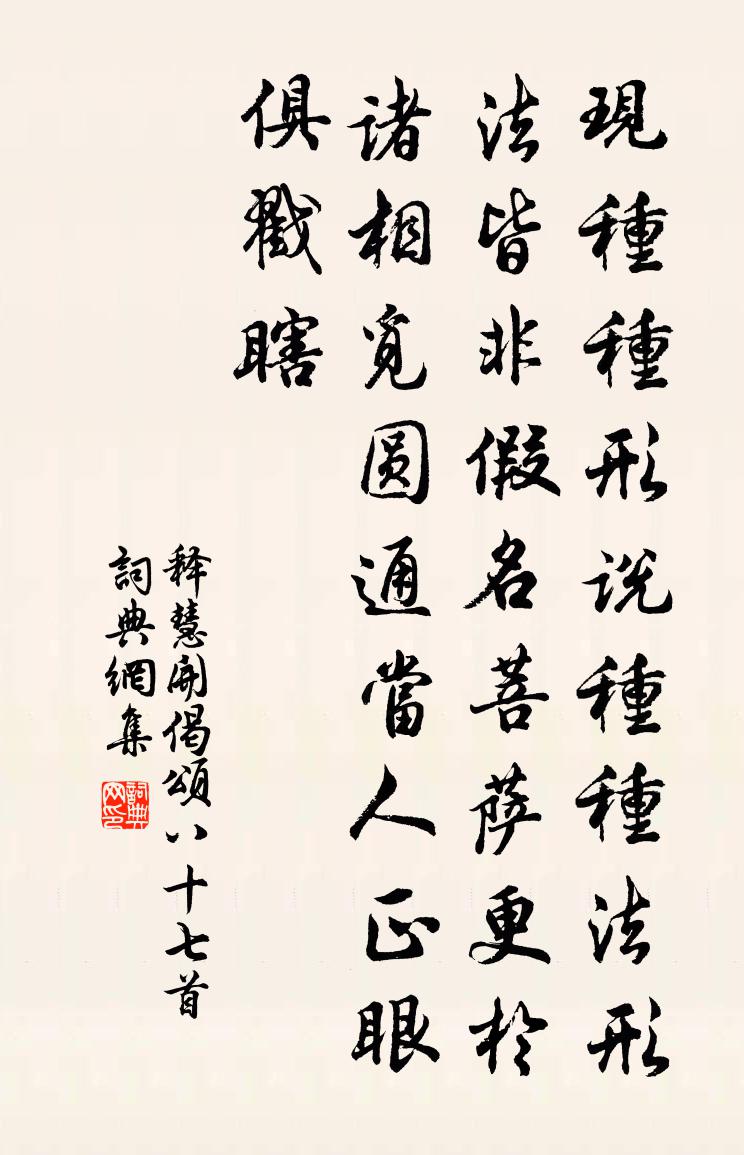 現種種形说種種法形
法皆非假名菩萨更於
诸相覓圆通當人正眼
俱戳瞎
释慧開偈頌八十七首
詞典網集
詞典网印